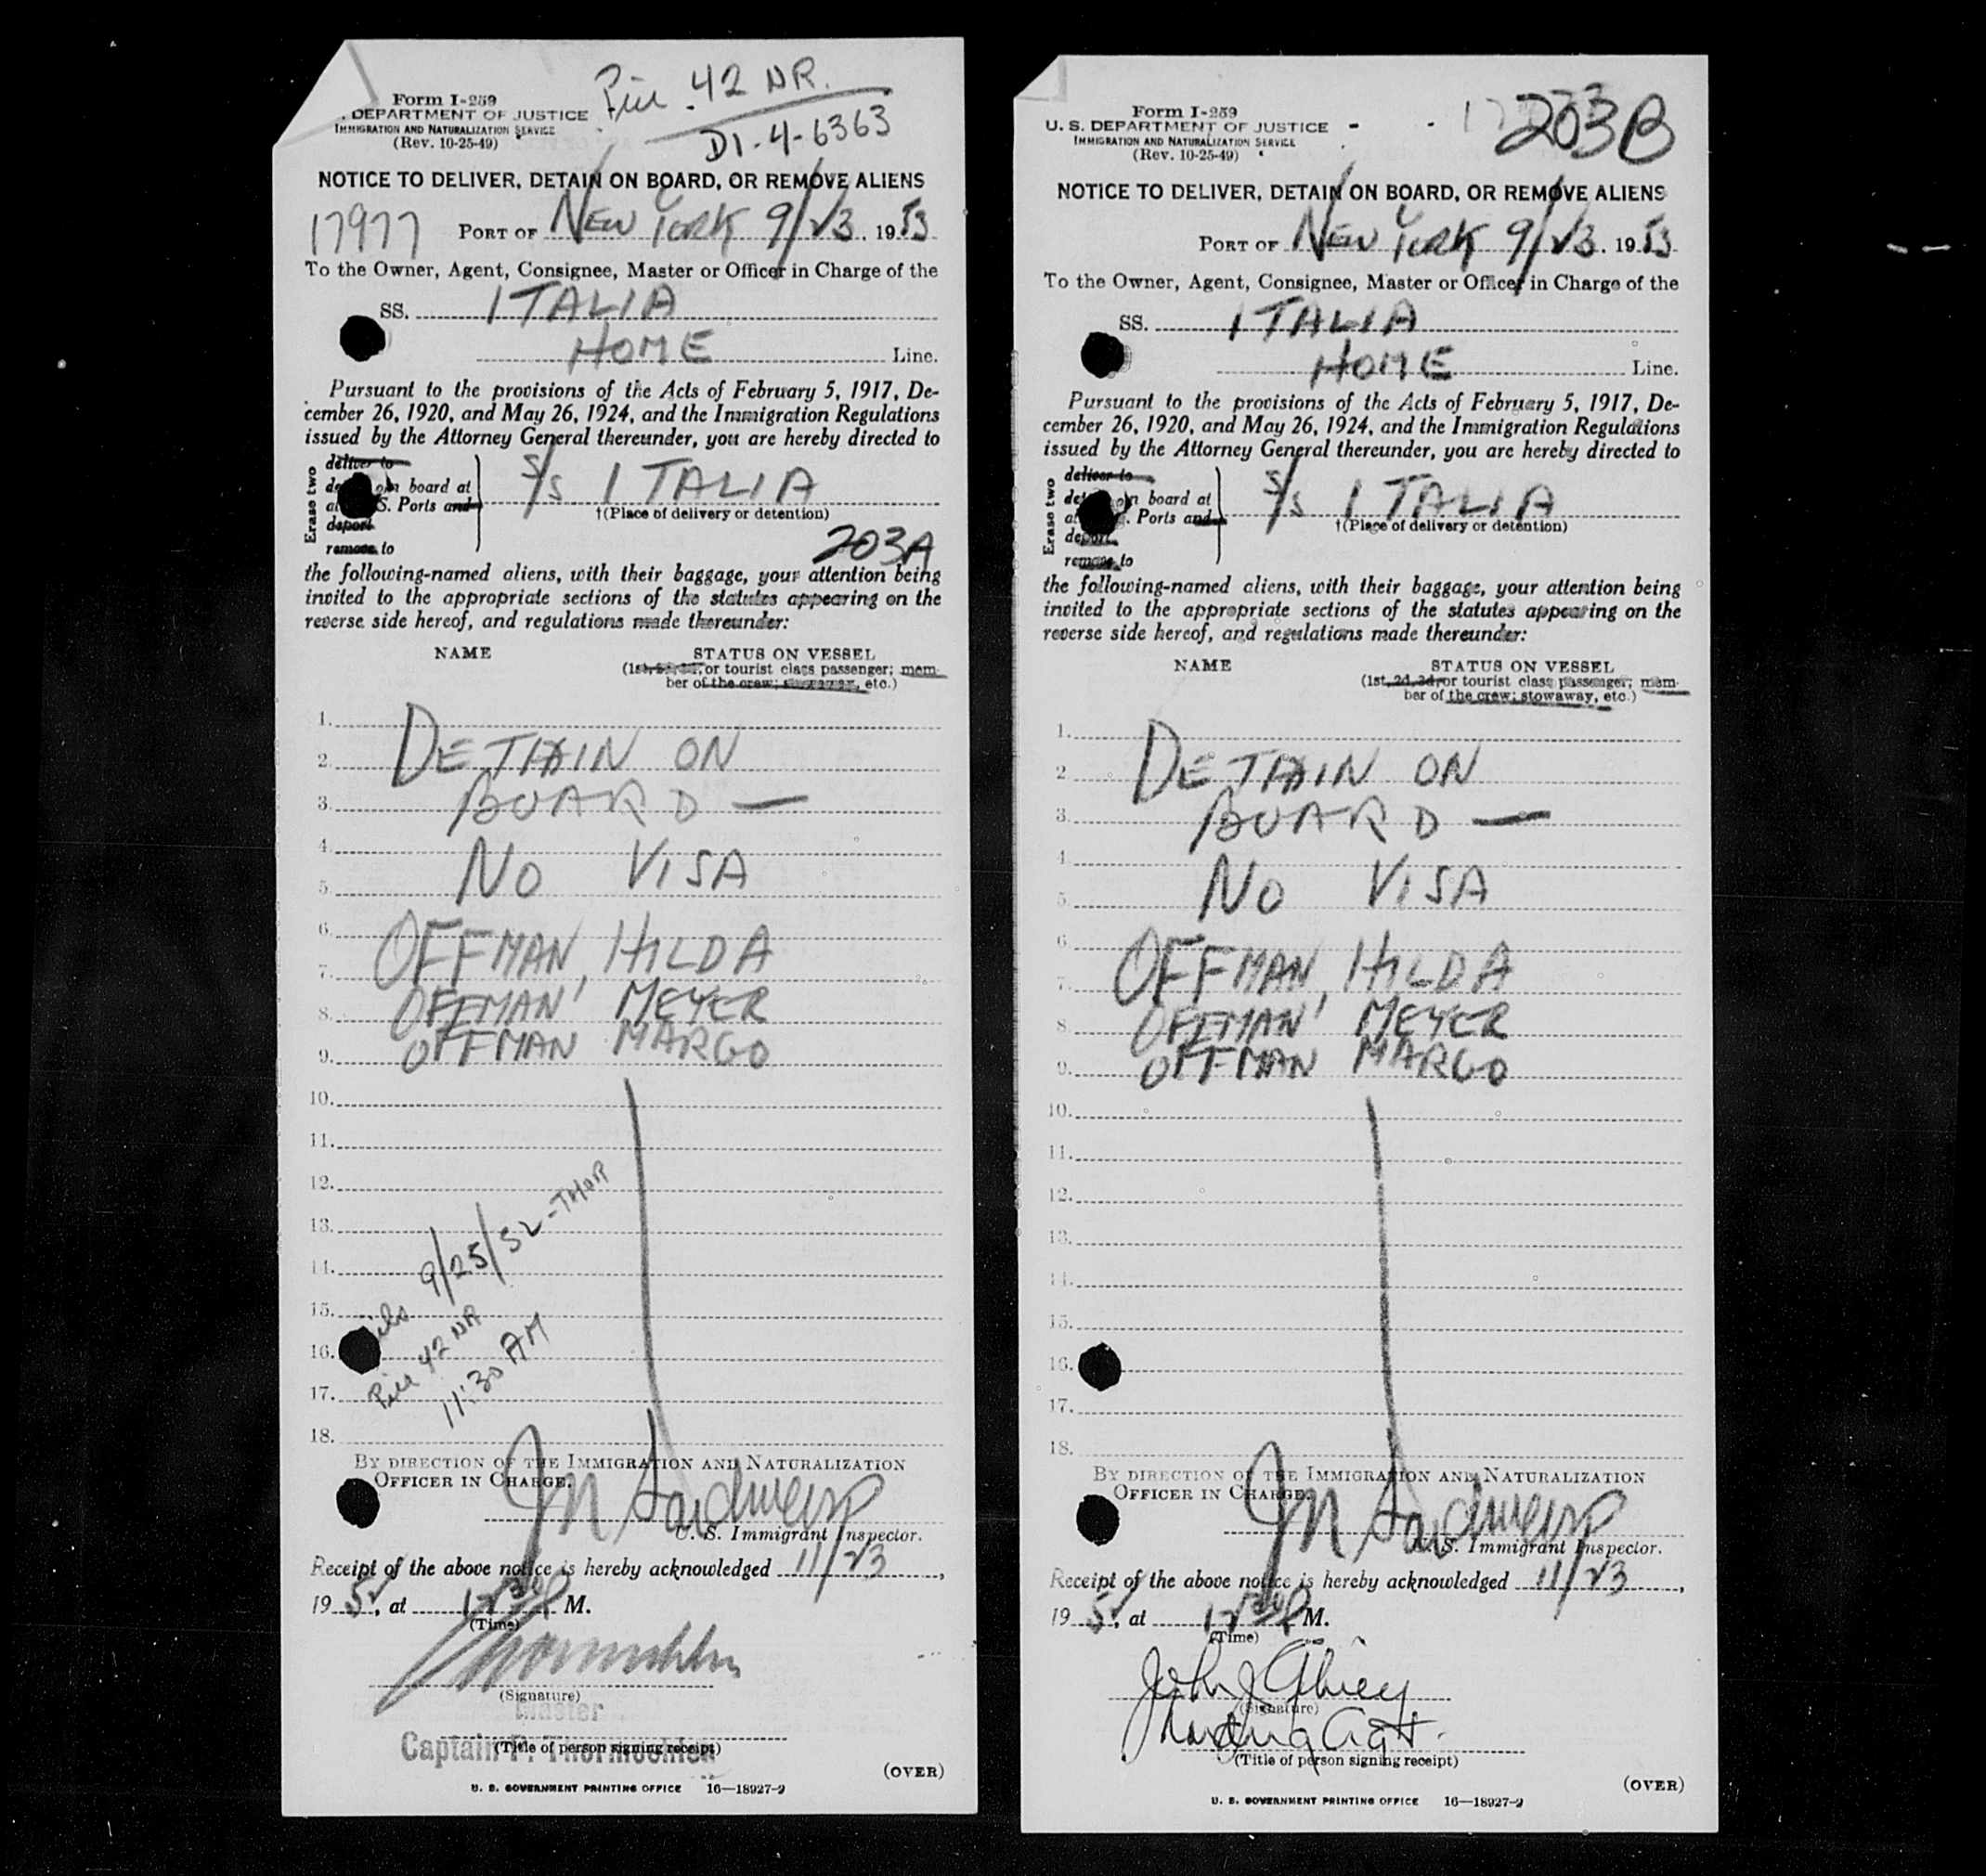 Form I-259
. DEPARTMENT OF JUSTICE
IMMIGRATION AND NATURALIZATION SERVICE
(Rev. 10-25-49)
Pier 42 NR.
D1-4-6363
NOTICE TO DELIVER, DETAIN ON BOARD, OR REMOVE ALIENS
17977 PORT OF NEW YORK 9/23, 1953
To the Owner, Agent, Consignee, Master or Officer in Charge of the
SS. ITALIA
HOME Line.
Pursuant to the provisions of the Acts of February 5, 1917, De-
cember 26, 1920, and May 26, 1924, and the Immigration Regulations
issued by the Attorney General thereunder, you are hereby directed to
Erase two
deliver to
on board at
S. Ports and
deport
remove to
S/S ITALIA
†(Place of delivery or detention)
203A
the following-named aliens, with their baggage, your attention being
invited to the appropriate sections of the statutes appearing on the
reverse side hereof, and regulations made thereunder:
NAME STATUS ON VESSEL
(1st, or tourist class passenger; mem-
ber of the crew; stowaway, etc.)
1.
2. DETAIN ON
3. BOARD —
4.
5. NO VISA
6.
7. OFFMAN, HILDA
8. OFFMAN, MEYER
9. OFFMAN MARGO
10.
11.
12.
13.
14.
15.
16.
17.
18.
9/25/52-THOR
Pier 42 NR
11:30 AM
BY DIRECTION OF THE IMMIGRATION AND NATURALIZATION
OFFICER IN CHARGE.
U. S. Immigrant Inspector.
Receipt of the above notice is hereby acknowledged 11/23,
1952, at 1230P M.
(Time)
(Signature)
Master
Captain F. Thormoehlen
(Title of person signing receipt)
(OVER)
U. S. GOVERNMENT PRINTING OFFICE 16—18927-2
Form I-259
U. S. DEPARTMENT OF JUSTICE
IMMIGRATION AND NATURALIZATION SERVICE
(Rev. 10-25-49)
203B
NOTICE TO DELIVER, DETAIN ON BOARD, OR REMOVE ALIENS
PORT OF NEW YORK 9/23, 1953
To the Owner, Agent, Consignee, Master or Officer in Charge of the
SS. ITALIA
HOME Line.
Pursuant to the provisions of the Acts of February 5, 1917, De-
cember 26, 1920, and May 26, 1924, and the Immigration Regulations
issued by the Attorney General thereunder, you are hereby directed to
Erase two
deliver to
on board at
Ports and
deport
remove to
S/S ITALIA
†(Place of delivery or detention)
the following-named aliens, with their baggage, your attention being
invited to the appropriate sections of the statutes appearing on the
reverse side hereof, and regulations made thereunder:
NAME STATUS ON VESSEL
(1st, 2d, 3d, or tourist class passenger; mem-
ber of the crew; stowaway, etc.)
1.
2. DETAIN ON
3. BOARD —
4.
5. NO VISA
6.
7. OFFMAN, HILDA
8. OFFMAN, MEYER
9. OFFMAN MARGO
10.
11.
12.
13.
14.
15.
16.
17.
18.
BY DIRECTION OF THE IMMIGRATION AND NATURALIZATION
OFFICER IN CHARGE.
U. S. Immigrant Inspector.
Receipt of the above notice is hereby acknowledged 11/23,
1952, at 1230P M.
(Time)
John J
(Signature)
(Title of person signing receipt)
(OVER)
U. S. GOVERNMENT PRINTING OFFICE 16—18927-2